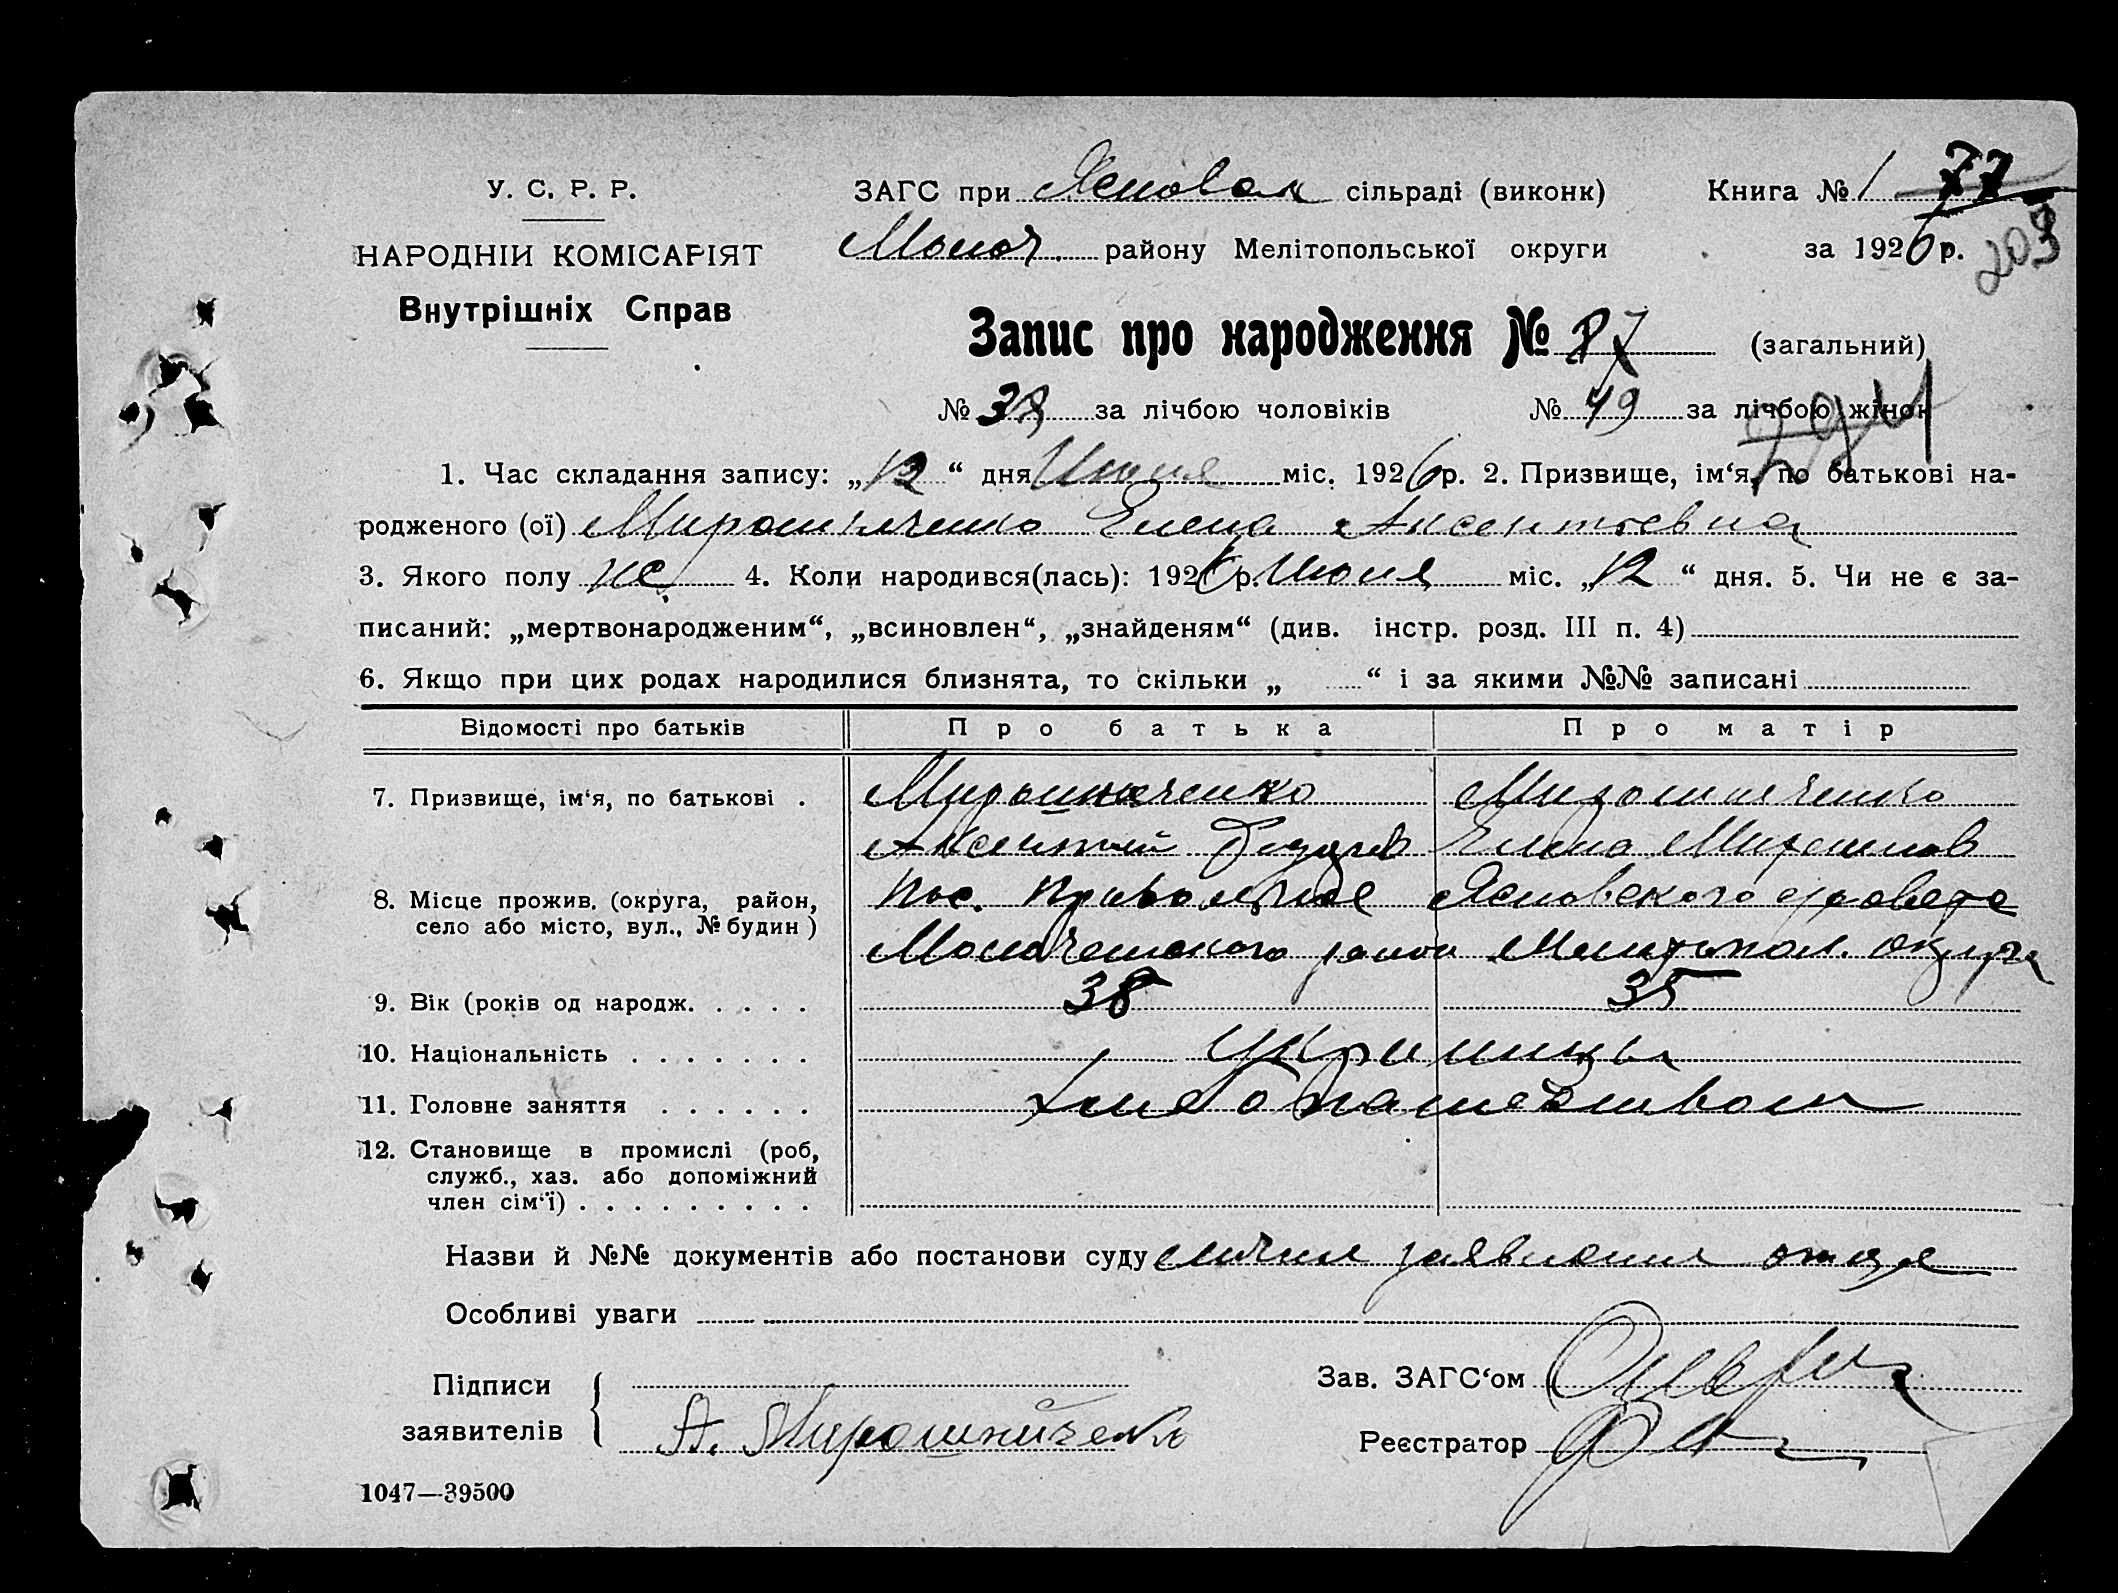 У. С. Р. Р.
НАРОДНІЙ КОМІСАРІЯТ
Внутрішніх Справ
ЗАГС при сільраді (виконк)
Молоч. району Мелітопольської округи
Книга № 1 77
за 1926 р.
203
Запис про народження № 87 (загальний)
№ 38 за лічбою чоловіків № 49 за лічбою жінок
1. Час складання запису: „12“ дня Июня міс. 1926 р. 2. Призвище, ім‘я, по батькові на-
родженого (ої) Мирошниченко Елена Аксентьевна
3. Якого полу же. 4. Коли народився(лась): 1926 р. Июня міс. „12“ дня. 5. Чи не є за-
писаний: „мертвонародженим“, „всиновлен“, „знайденям“ (див. інстр. розд. III п. 4)
6. Якщо при цих родах народилися близнята, то скільки „ “ і за якими №№ записані
Відомості про батьків Про батька Про матір
7. Призвище, ім‘я, по батькові . Мирошниченко Мирошниченко
Аксентий Елена
8. Місце прожив. (округа, район, село або місто, вул., № будин ) пос. Привольное Ясновского с/совета
Молочанского район Мелитопол. округа
9. Вік (років од народж. . . . . 38 35
10. Національність . . . . . . . Украинцы
11. Головне заняття . . . . . . Хлебопашеством
12. Становище в промислі (роб, служб., хаз. або допоміжний член сім‘ї) . . . . . . . . .
Назви й №№ документів або постанови суду личная заявления отца
Особливі уваги
Підписи
заявителів
А. Мирошниченко
Зав. ЗАГС‘ом
Реєстратор
1047—39500